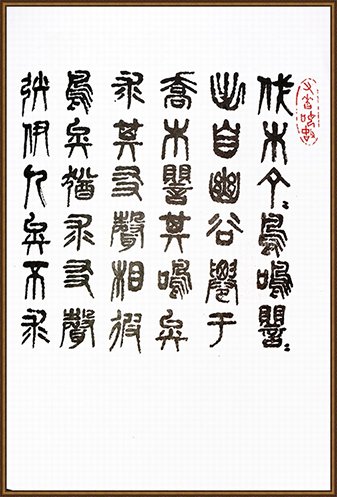 伐木丁〻鳥鳴嚶〻
出自幽谷遷于
喬木嚶其鳴矣
求其友聲相彼
鳥矣猶求友聲
矧伊人矣不求